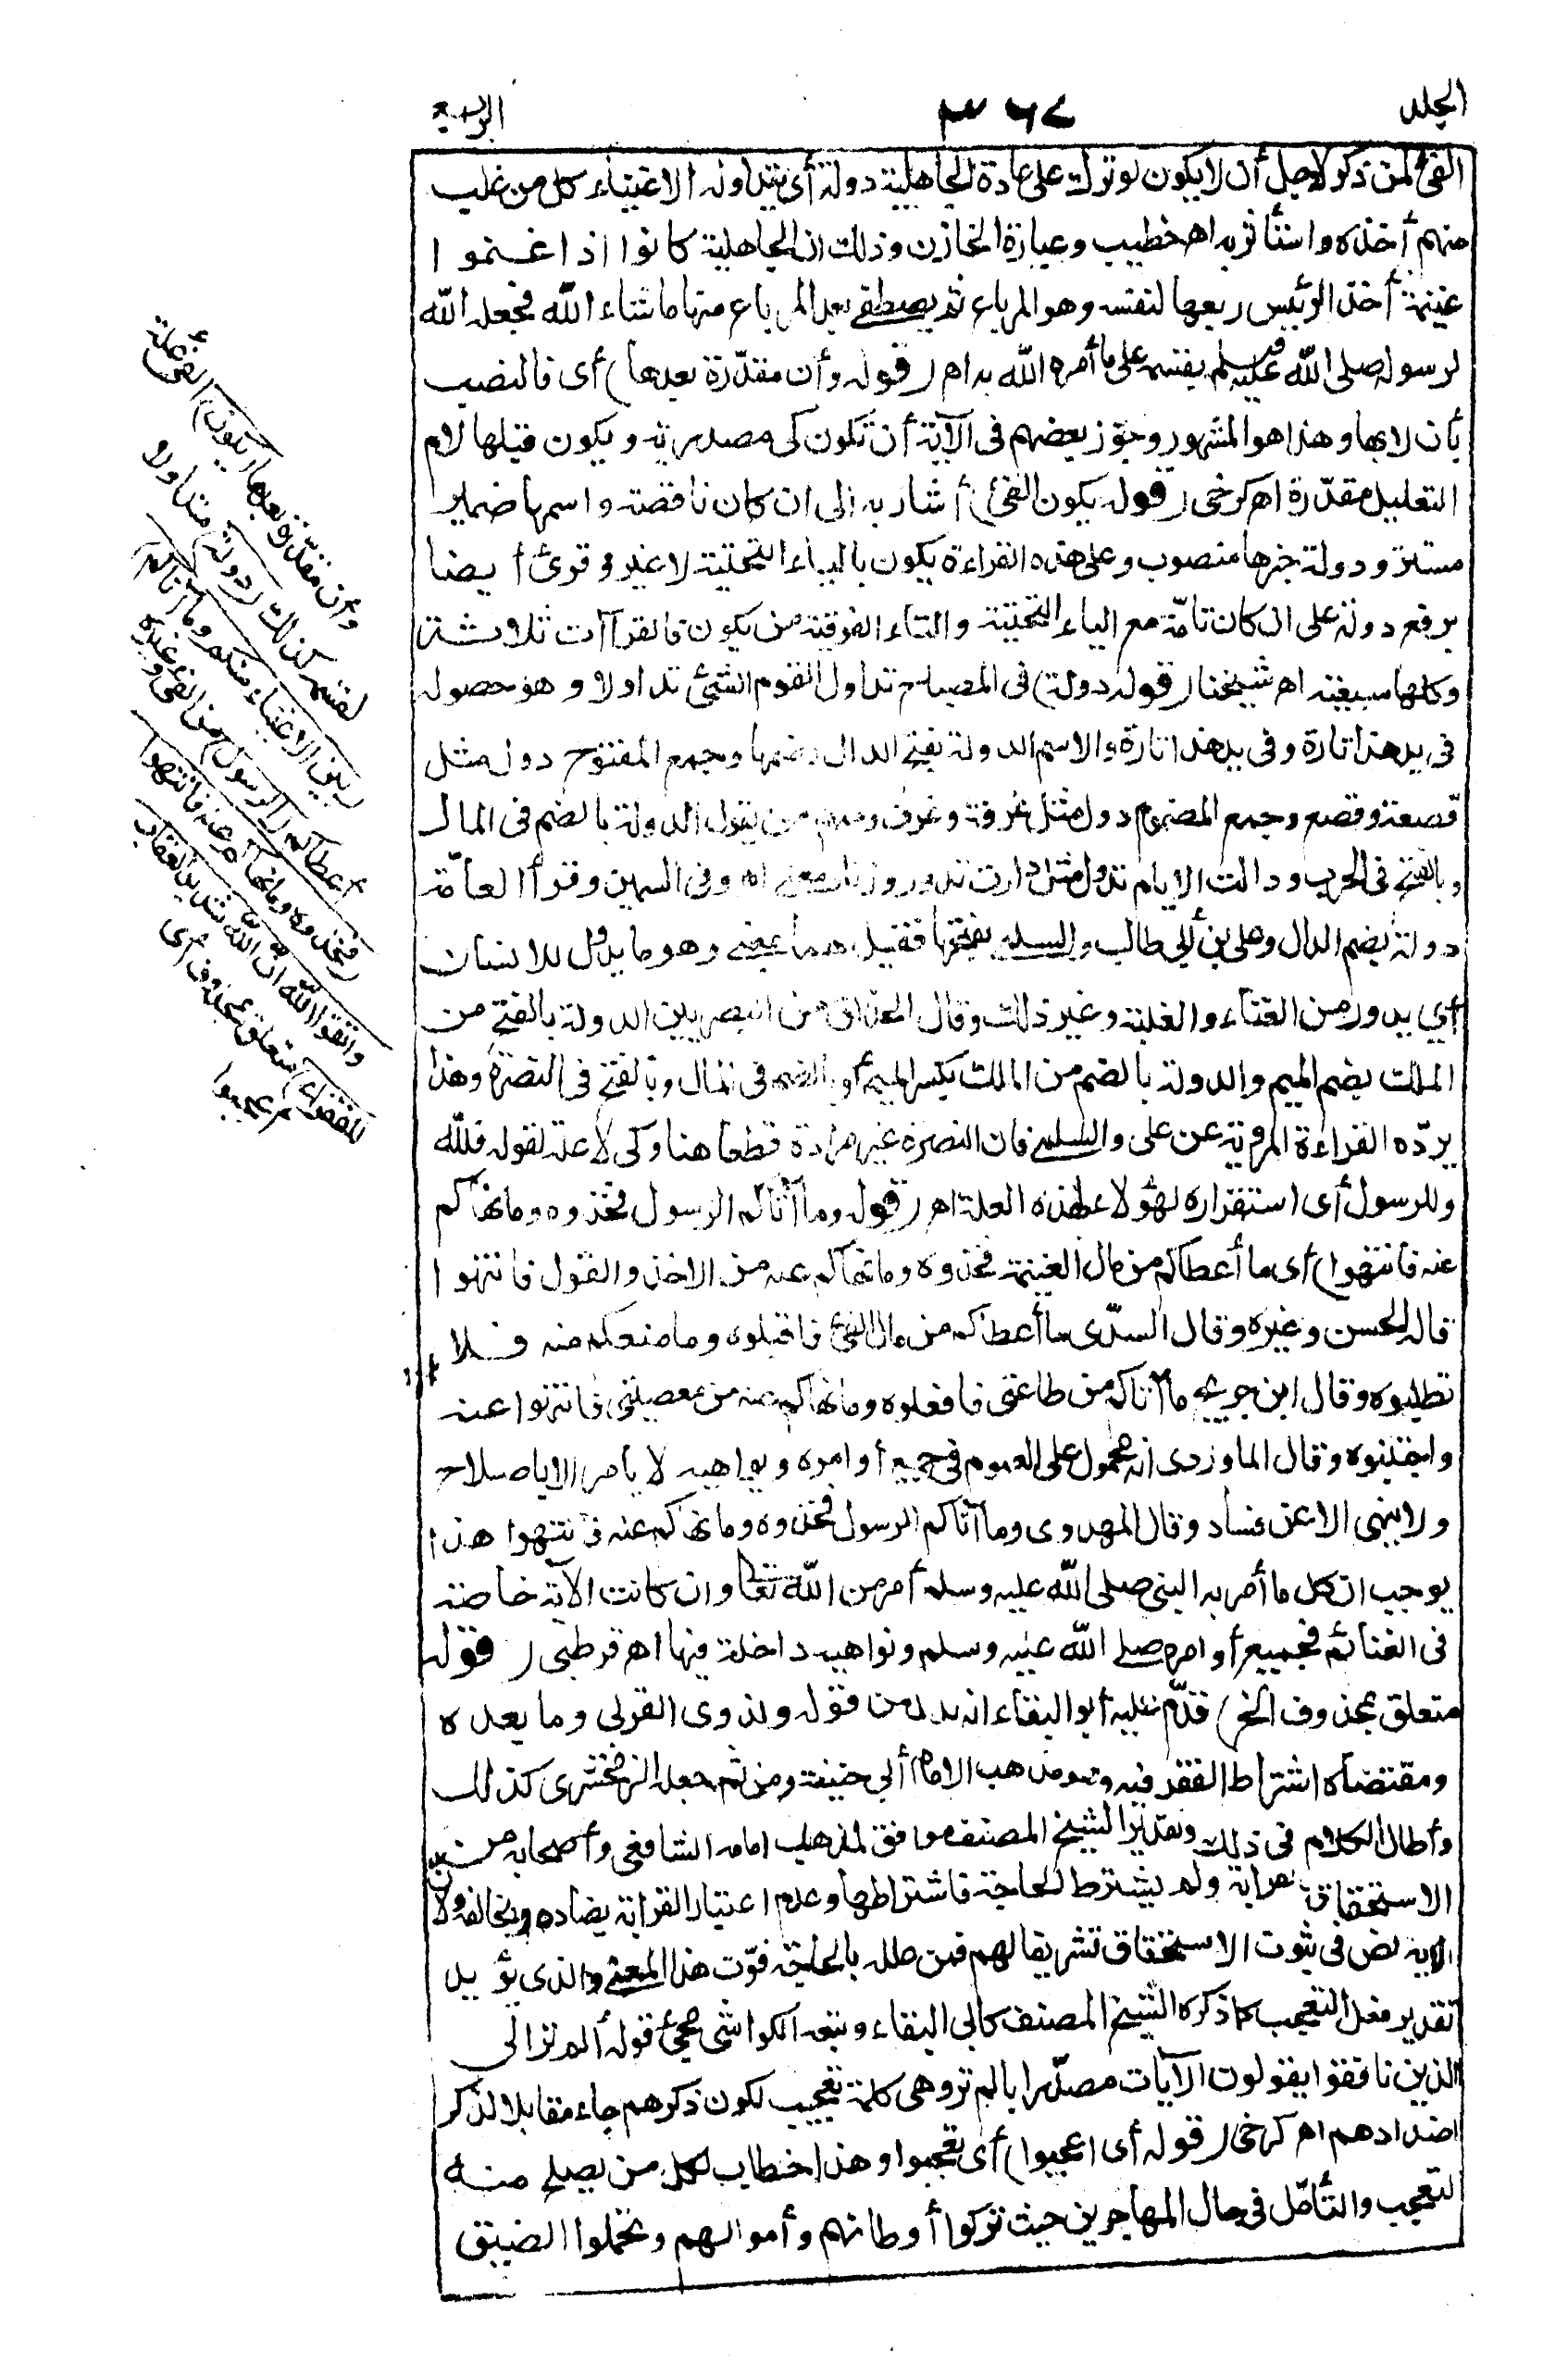 الجلد ٣٦٧ الرابع
الفئ لمن ذكر لاجل أن لا يكون لو ترك على عادة الجاهلية دولة أى يتداوله الاغنياء كل من غلب
منهم أخذه واستأثر به اهـ خطيب وعبارة الخازن وذلك ان الجاهلية كانوا اذا غنموا
غنيمة أخذ الرئيس ربعها لنفسه وهو المرباع ثم يصطفى بعد المرباع منها ما شاء الله فجعله الله
لرسوله صلى الله عليه وسلم يقسمه على ما أمره الله به اهـ (قوله وأن مقدّرة بعدها) أى فالنصب
بأن لا بها وهذا هو المشهور وجوّز بعضهم فى الآية أن تكون كى مصدرية ويكون قبلها لام
التعليل مقدّرة اهـ كرخى (قوله يكون الفئ) أشار به الى ان كان ناقصة واسمها ضمير
مستتر ودولة خبرها منصوب وعلى هذه القراءة يكون بالياء التحتية لا غير وقرئ أيضا
برفع دولة على ان كان تامّة مع الياء التحتية والتاء الفوقية من يكون فالقراآت ثلاثة
وكلها سبعية اهـ شيخنا (قوله دولة) فى المصباح تداول القوم الشئ تداولا وهو حصوله
فى يد هذا تارة وفى يد هذا تارة والاسم الدولة بفتح الدال وضمها وجمع المفتوح دول مثل
قصعة وقصع وجمع المضموم دول مثل غرفة وغرف ومنهم من يقول الدولة بالضم فى المال
وبالفتح فى الحرب ودالت الايام تدول مثل دارت تدور وزنا ومعنى اهـ وفى السمين وقرأ العامّة
دولة بضم الدال وعلى بن أبى طالب والسلمى بفتحها فقيل هما بمعنى وهو ما يدول للانسان
أي يدور من الغناء والغلبة وغير ذلك وقال الحذاق من البصريين الدولة بالفتح من
الملك بضم الميم والدولة بالضم من الملك بكسر الميم أو بالضم فى المال وبالفتح فى النصرة وهذا
يردّه القراءة المروية عن على والسلمى فان النصرة غير مرادة قطعا هنا وكى لا علة لقوله فلله
وللرسول أى استقراره لهؤلاء لهذه العلة اهـ (قوله وما آتاكم الرسول فخذوه وما نهاكم
عنه فانتهوا) أى ما أعطاكم من مال الغنيمة فخذوه وما نهاكم عنه من الاخذ والقول فانتهوا
قاله الحسن وغيره وقال السدّى ما أعطاكم من مال الفئ فاقبلوه وما منعكم منه فلا
تطلبوه وقال ابن جريج ما آتاكم من طاعتى فافعلوه وما نهاكم عنه من معصيتى فانتهوا عنه
واجتنبوه وقال الماوردى انه محمول على العموم فى جميع أوامره ونواهيه لا يأمر الا باصلاح
ولا ينهى الا عن فساد وقال المهدوى وما آتاكم الرسول فخذوه وما نهاكم عنه فانتهوا هذا
يوجب ان كل ما أمر به النبى صلى الله عليه وسلم أمر من الله تعالى وان كانت الآية خاصة
فى الغنائم فجميع أوامره صلى الله عليه وسلم ونواهيه داخلة فيها اهـ قرطبى (قوله
متعلق بمحذوف الخ) قدّم عليه أبو البقاء انه بدل من قوله ولذوى القربى وما بعده
ومقتضاه اشتراط الفقر فيه وهو مذهب الامام أبى حنيفة ومن ثم جعله الزمخشرى كذلك
وأطال الكلام فى ذلك وتقدير الشيخ المصنف موافق لمذهب امامه الشافعى وأصحابه من أنّ
الاستحقاق بالقرابة ولم يشترط الحاجة فاشتراطها وعدم اعتبار القرابة يضاده ويخالفه ولان
الآية نص فى ثبوت الاستحقاق تشريفا لهم فمن علله بالحاجة فوّت هذا المعنى والذى يؤيد
تقدير فعل التعجب كما ذكره الشيخ المصنف كأبى البقاء وتبعه الكواشى مجئ قوله ألم تر الى
الذين نافقوا يقولون الآيات مصدّرا بألم تر وهى كلمة تعجيب لكون ذكرهم جاء مقابلا لذكر
اضدادهم اهـ كرخى (قوله أى اعجبوا) أى تعجبوا وهذا خطاب لكل من يصلح منه
التعجب والتأمّل فى حال المهاجرين حيث تركوا أوطانهم وأموالهم وتحملوا الضيق
وأن مقدّرة بعدها (يكون) الفئ علة
لقسمه كذلك (دولة) متداولا
(بين الاغنياء منكم وما آتاكم)
أعطاكم (الرسول) من الفئ وغيره
(فخذوه وما نهاكم عنه فانتهوا
واتقوا الله ان الله شديد العقاب
للفقراء) متعلق بمحذوف أى
اعجبوا